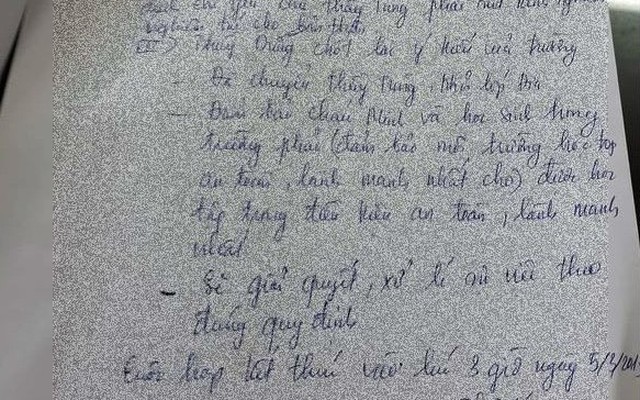 của thầy Trung phải rút kinh nghiệm
nghiêm túc cho bản thân
III) Thầy Dũng chốt lại ý kiến nhà trường
- Đã chuyển Thầy Trung, khỏi lớp
- Đảm bảo cháu Minh và học sinh trong
trường phải (đảm bảo môi trường học tập
an toàn, lành mạnh nhất cho) được học
tập trong điều kiện an toàn, lành mạnh
nhất
- Sẽ giải quyết, xử lí sự việc theo
đúng quy định
Cuộc họp kết thúc vào lúc 3 giờ ngày 5/3/201